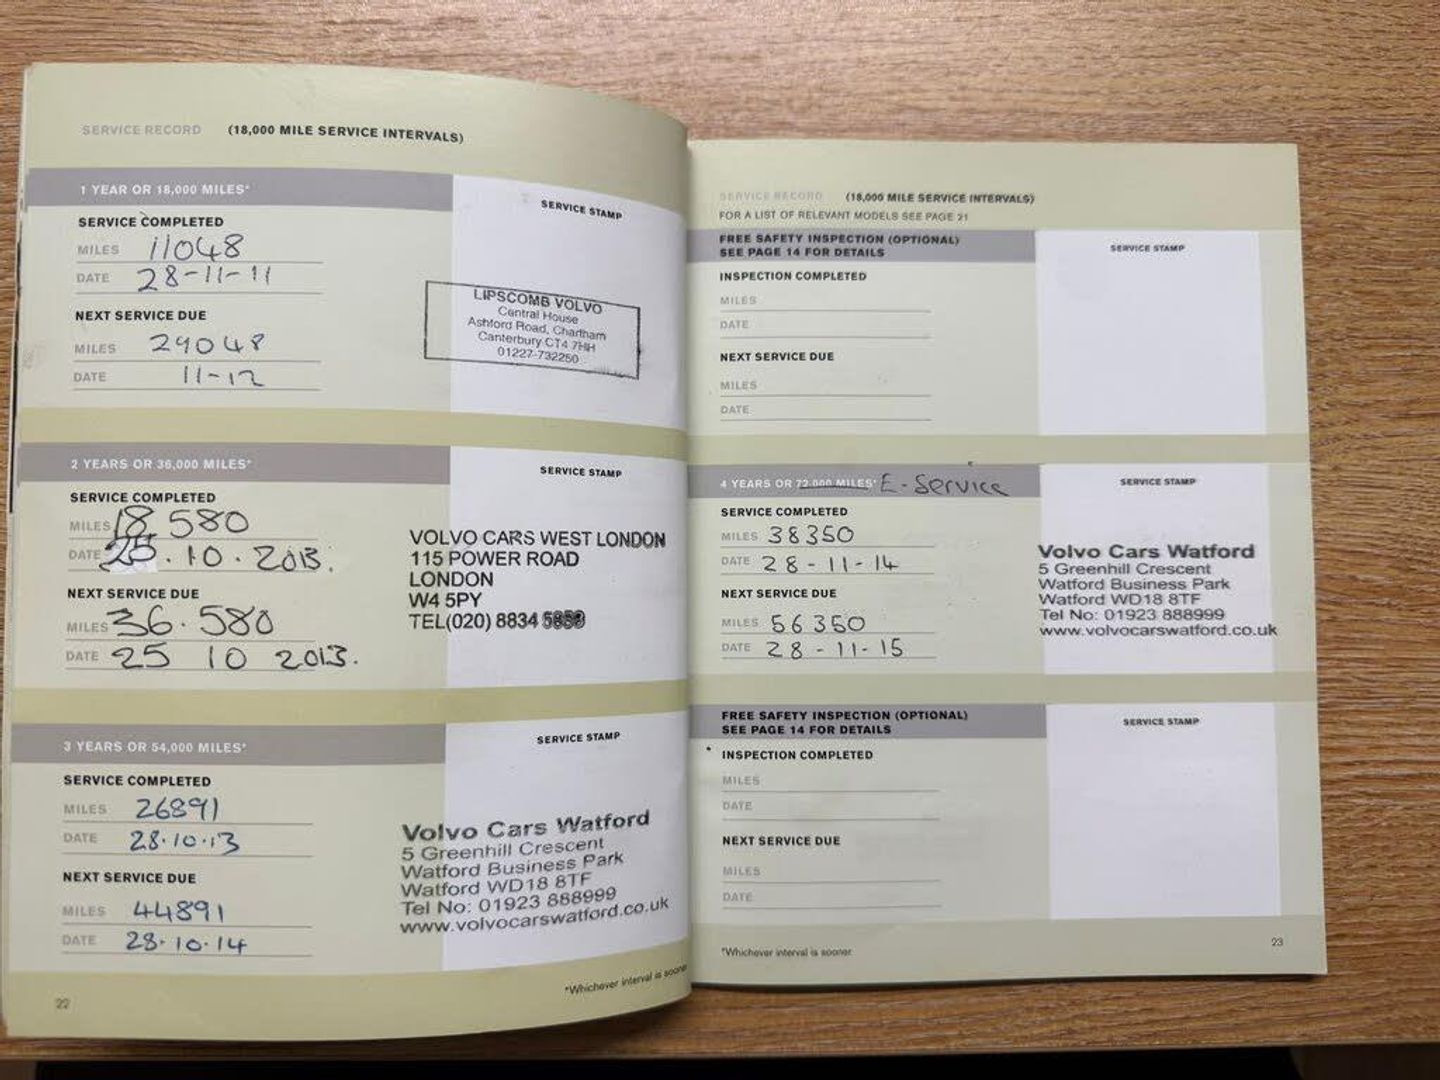 SERVICE RECORD (18,000 MILE SERVICE INTERVALS)
1 YEAR OR 18,000 MILES*
SERVICE COMPLETED
MILES 11048
DATE 28-11-11
NEXT SERVICE DUE
MILES 29048
DATE 11-12
SERVICE STAMP
LIPSCOMB VOLVO
Central House
Ashford Road, Chartham
Canterbury CT4 7HH
01227-732250
2 YEARS OR 36,000 MILES*
SERVICE COMPLETED
MILES 18 580
DATE 25.10.2013.
NEXT SERVICE DUE
MILES 36.580
DATE 25 10 2013.
SERVICE STAMP
VOLVO CARS WEST LONDON
115 POWER ROAD
LONDON
W4 5PY
TEL(020) 8834
3 YEARS OR 54,000 MILES*
SERVICE COMPLETED
MILES 26891
DATE 28.10.13
NEXT SERVICE DUE
MILES 44891
DATE 28.10.14
SERVICE STAMP
Volvo Cars Watford
5 Greenhill Crescent
Watford Business Park
Watford WD18 8TF
Tel No: 01923 888999
www.volvocarswatford.co.uk
*Whichever interval is sooner
22
SERVICE RECORD (18,000 MILE SERVICE INTERVALS)
FOR A LIST OF RELEVANT MODELS SEE PAGE 21
FREE SAFETY INSPECTION (OPTIONAL)
SEE PAGE 14 FOR DETAILS
INSPECTION COMPLETED
MILES
DATE
NEXT SERVICE DUE
MILES
DATE
SERVICE STAMP
4 YEARS OR 72,000 MILES* E-Service
SERVICE COMPLETED
MILES 38350
DATE 28-11-14
NEXT SERVICE DUE
MILES 56350
DATE 28-11-15
SERVICE STAMP
Volvo Cars Watford
5 Greenhill Crescent
Watford Business Park
Watford WD18 8TF
Tel No: 01923 888999
www.volvocarswatford.co.uk
FREE SAFETY INSPECTION (OPTIONAL)
SEE PAGE 14 FOR DETAILS
INSPECTION COMPLETED
MILES
DATE
NEXT SERVICE DUE
MILES
DATE
SERVICE STAMP
*Whichever interval is sooner
23